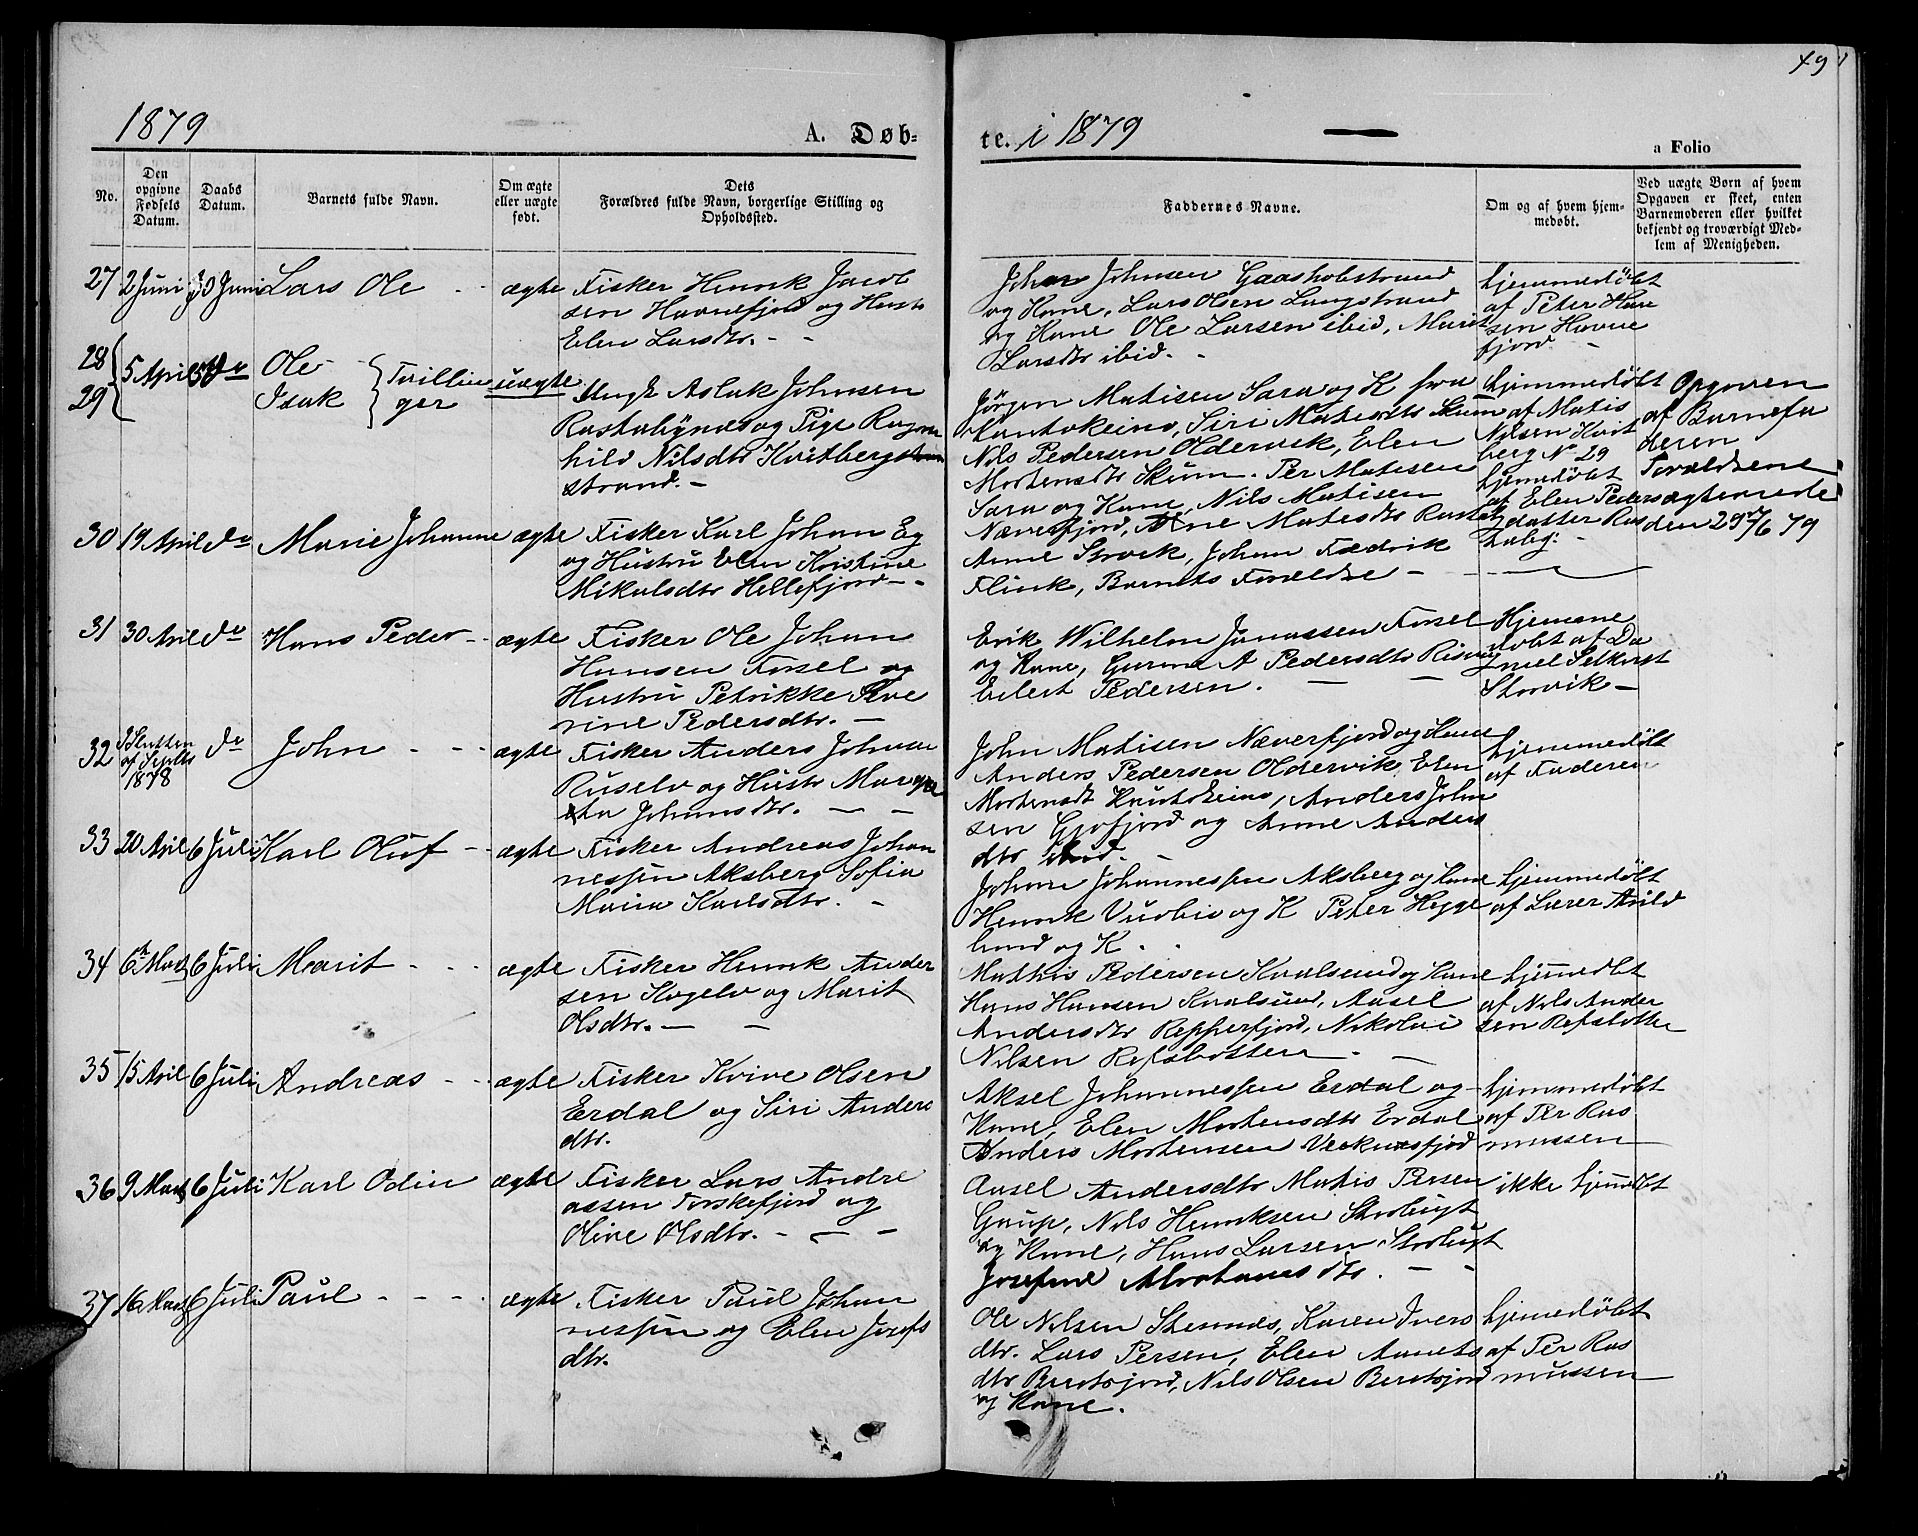 49
1879
A. Døb-
te. i 1879
a Folio
No.
Den
opgivne
Fødsels
Datum.
Daabs
Datum.
Barnets fulde Navn.
Om ægte
eller uægte
født.
Dets
Forældres fulde Navn, borgerlige Stilling og
Opholdssted.
Faddernes Navne.
Om og af hvem hjem-
medøbt.
Ved uægte Børn af hvem
Opgaven er skeet, enten
Barnemoderen eller hvilket
bekjendt og troværdigt Med-
lem af Menigheden.
27 2 Juni 30 Juni Lars Ole - - ægte Fisker Henrik Jacob
sen Havnefjord og Hustr
Elen Larsdtr. - -
Johan Johnsen Gaasholstrand
og Kone, Lars Olsen Langstrand
og Kone Ole Larsen ibid, Marit
Larsdtr ibid. -
hjemmedøbt
af Peter Han
sen Havne
fjord. -
28
29 5 April do Ole
Isak Tvillin
ger uægte
Ungk Aslak Johnsen
Rastabynes og Pige Ragn
hild Nilsdtr Kvitberg
strand. -
Jørgen Matisen Sara og K fra
Kautokeino, Siri Matisdtr Skum
Nils Pedersen Oldervik, Elen
Mortensdtr Skum. Per Matisen
Sara og Kone, Nils Matisen
Næverfjord, Ane Matisdtr
hjemmedøbt
af Matis
Nilsen Kvit
berg No 29
hjemedøbt
af Elen Peders
datter Ras
taby. -
Opgaven
af Barnefa
deren
Foræeldrene
ægteviede
den 29/6 79
30 19 April do Marie Johanne ægte Fisker Karl Johan Eg
og Hustru Elen Kristine
Mikalsdtr Hellefjord - -
Anne Storvik, Johan Fredrik
Flink, Barnets Forældre -
31 30 April do Hans Peder - - ægte Fisker Ole Johan
Hansen Forsel og
Hustru Petrikke Seve
rine Pedersdtr. -
Erik Wilhelm Jonassen Forsel
og Kone, Gurine A Pedersdtr
Eilert Pedersen. - -
Hjemme
døbt af Da
niel Selkvist
Storvik -
32 Slutten
af Septbr
1878 do John - - - ægte Fisker Anders Johnsen
Ruselv og Hustr Margre
ta Johnsdtr. - -
John Matisen Næverfjord og Kone
Anders Pedersen Oldervik, Elen
Mortensdt Kautokeino, Anders John
sen Gjofjord og Anne Anders
dtr ibid. -
hjemmedøbt
af Faderen
33 20 April 6 Juli Karl Oluf - - ægte Fisker Andreas Johan
nessen Aksberg Sofia
Maria Karlsdtr. -
Johan Johannessen Aksberg og Kone
Henrik og K Peter Hegge
lund og K. -
hjemmedøbt
af Lærer Avild
34 6te Mai 6 Juli Marit - - - ægte Fisker Henrik Ander
sen Kogelv og Marit
Olsdtr. - -
Mathis Pedersen Kvalsund og Kone
Hans Hansen Kvalsund, Aasel
Andersdtr Repperfjord, Nikolai
Nilsen Refsbotten - -
hjemedbt
af Nils Ander
sen Refsbotten
35 15 April 6 Juli Andreas - - ægte Fisker Kvive Olsen
Erdal og Siri Anders
dtr.
Aksel Johannessen Erdal og
Kone, Elen Mortensdtr Erdal
Anders Mortensen Veeknesfjord
hjemmedøbt
af Per Ras
mussen
36 9 Marts 6 Juli Karl Odin ægte Fisker Lars Andre
assen Torskefjord og
Oline Olsdtr. - - -
Aasel Andersdtr Matis Persen
Gaup, Nils Henriksen Storbugt
og Kone, Hans Larsen Storbugt
Josefine Abrahamsdtr. - -
ikke hjemdøbt
37 16 Marts 6 Juli Paul - - - - ægte Fisker Paul Johan
nessen og Elen Josefs
dtr.
Ole Nilsen Stensnes, Karen Ivers
dtr. Lars Persen, Elen Aanets
dtr Beretsjord, Nils Olsen Beretsjord
og Kone.
hjemmedøbt
af Per Ras
mussen